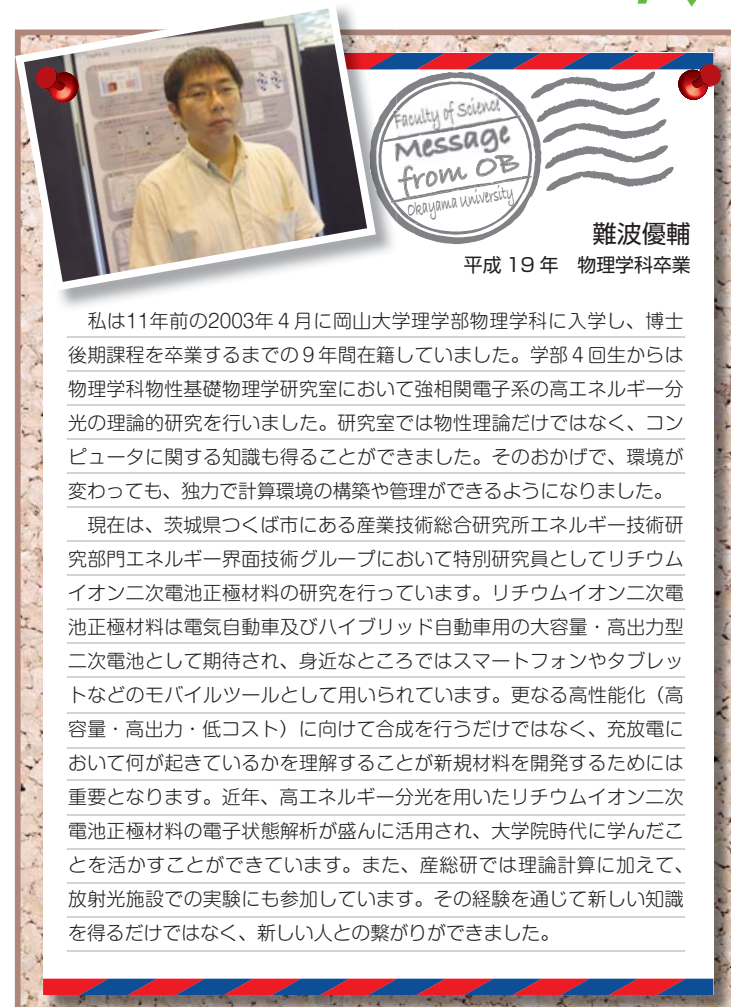 Faculty of Science
Message
from OB
Okayama University
難波優輔
平成 19 年　物理学科卒業
　私は11年前の2003年４月に岡山大学理学部物理学科に入学し、博士
後期課程を卒業するまでの９年間在籍していました。学部４回生からは
物理学科物性基礎物理学研究室において強相関電子系の高エネルギー分
光の理論的研究を行いました。研究室では物性理論だけではなく、コン
ピュータに関する知識も得ることができました。そのおかげで、環境が
変わっても、独力で計算環境の構築や管理ができるようになりました。
　現在は、茨城県つくば市にある産業技術総合研究所エネルギー技術研
究部門エネルギー界面技術グループにおいて特別研究員としてリチウム
イオン二次電池正極材料の研究を行っています。リチウムイオン二次電
池正極材料は電気自動車及びハイブリッド自動車用の大容量・高出力型
二次電池として期待され、身近なところではスマートフォンやタブレッ
トなどのモバイルツールとして用いられています。更なる高性能化（高
容量・高出力・低コスト）に向けて合成を行うだけではなく、充放電に
おいて何が起きているかを理解することが新規材料を開発するためには
重要となります。近年、高エネルギー分光を用いたリチウムイオン二次
電池正極材料の電子状態解析が盛んに活用され、大学院時代に学んだこ
とを活かすことができています。また、産総研では理論計算に加えて、
放射光施設での実験にも参加しています。その経験を通じて新しい知識
を得るだけではなく、新しい人との繋がりができました。